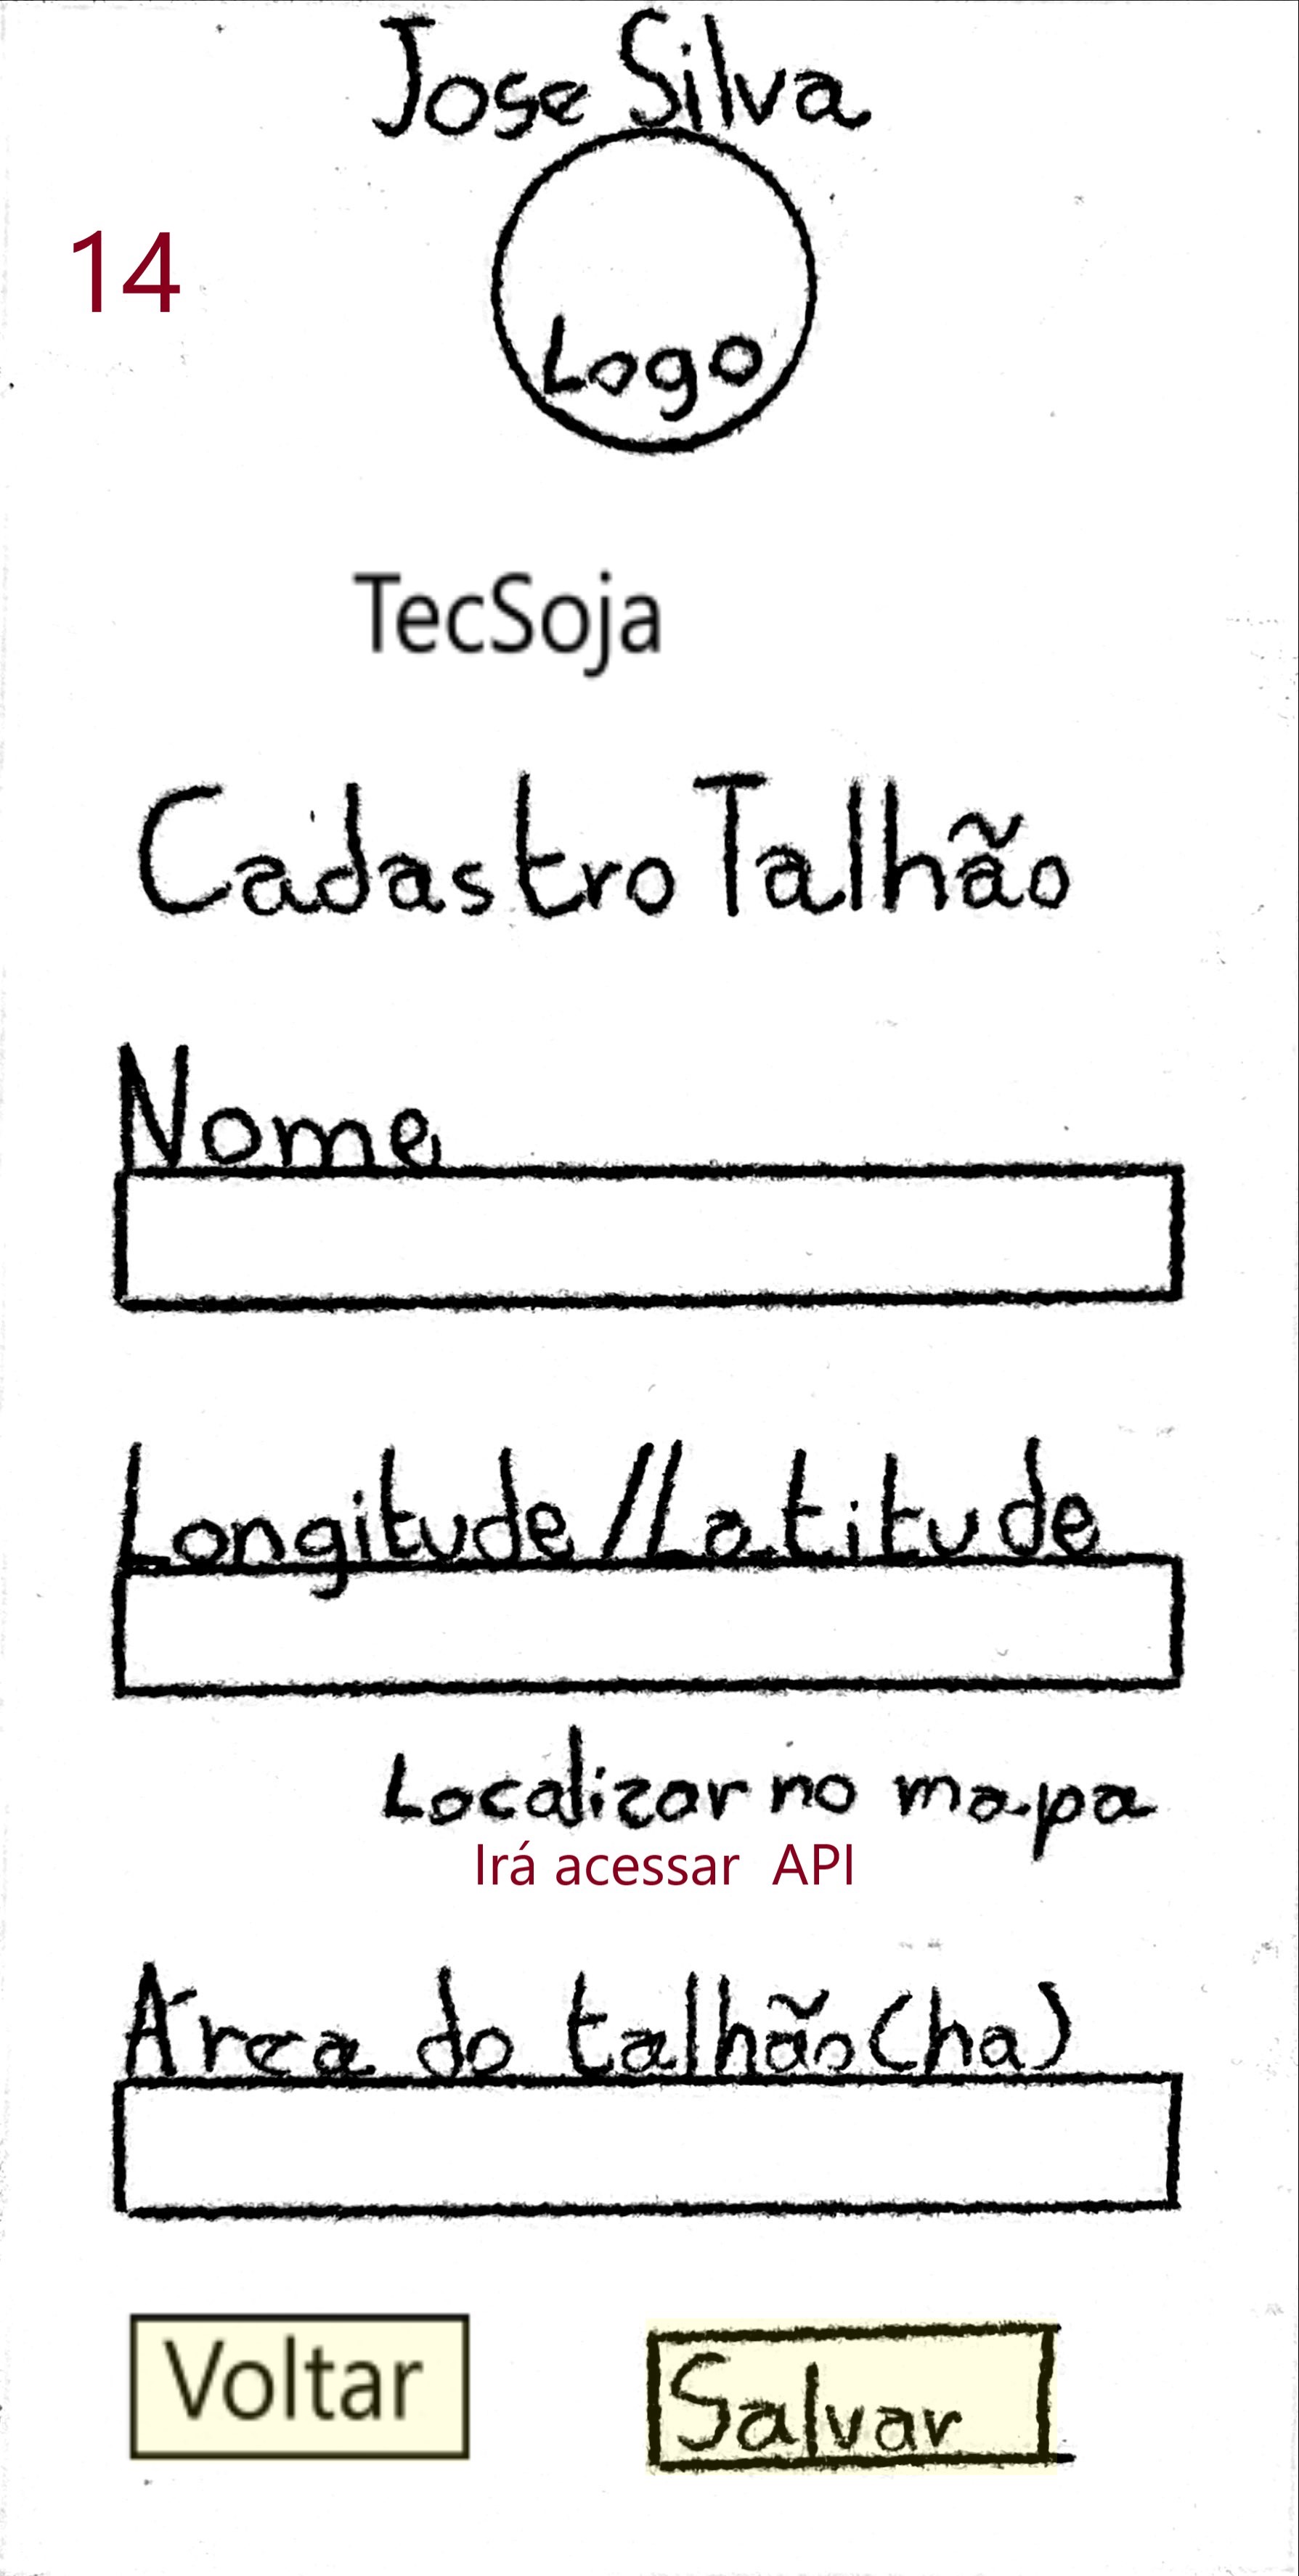 Jose Silva
14
Logo
TecSoja
Cadastro Talhão
Nome
Longitude/Latitude
Localizar no mapa
Irá acessar API
Área do talhão(ha)
Voltar
Salvar